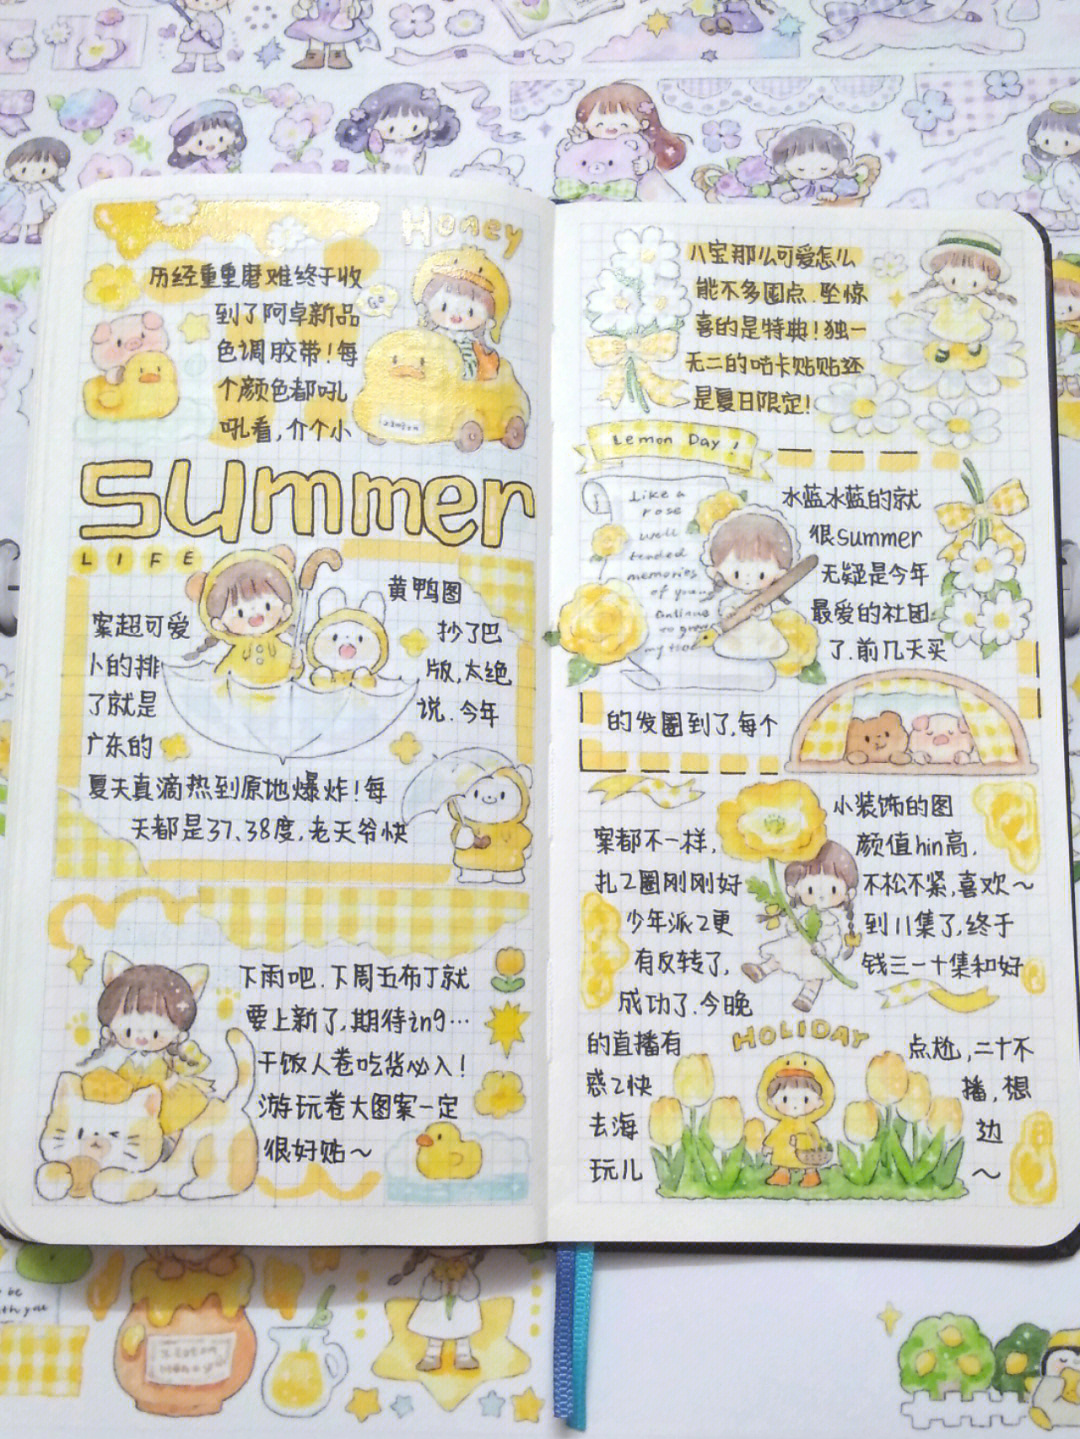 Honey
历经重重磨难终于收
到了阿卓新品
色调胶带！每
个颜色都吼
吼看，介个小
Summer
LIFE
黄鸭图
案超可爱
抄了巴
卜的排
版，太绝
了就是
说．今年
广东的
夏天真滴热到原地爆炸！每
天都是37.38度，老天爷快
下雨吧．下周五布丁就
要上新了，期待ing…
干饭人卷吃货必入！
游玩卷大图案一定
很好贴～
八宝那么可爱怎么
能不多囤点．坠惊
喜的是特典！独一
无二的咕卡贴贴还
是夏日限定！
Lemon Day！
Like a
rose
well
tended
memories
of your
continue
to grow
水蓝水蓝的就
很summer
无疑是今年
最爱的社团
了．前几天买
的发圈到了，每个
小装饰的图
案都不一样，
颜值hin高，
扎了圈刚刚好
不松不紧，喜欢～
少年派2更
到11集了，终于
有反转了，
钱三一十集和好
成功了．今晚
的直播有
HOLIDAY
点尬，二十不
惑2快
播，想
去海
边
玩儿
～